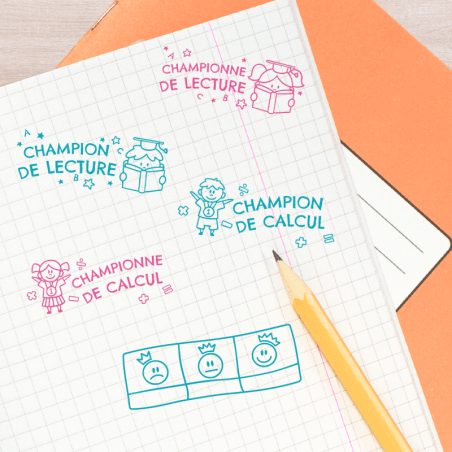 CHAMPIONNE
DE LECTURE
A
C
B
CHAMPION
DE LECTURE
A
C
B
CHAMPION
DE CALCUL
1
÷
×
+
=
CHAMPIONNE
DE CALCUL
1
÷
×
+
=